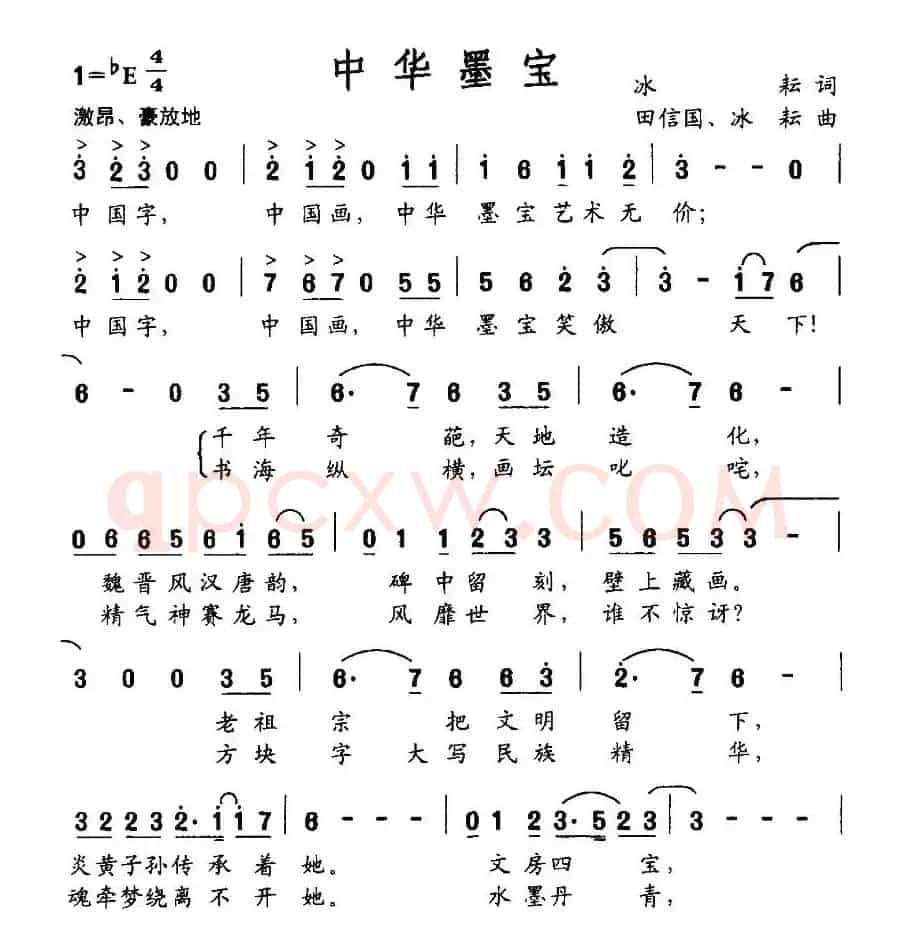 中华墨宝
1=♭E 4/4
冰 耘 词
激昂、豪放地
田信国、冰 耘 曲
3 2 3 0 0 | 2 1 2 0 1 1 | 1 6 1 1 2 | 3 - - 0 |
中国字, 中国画, 中华 墨宝艺术无 价;
2 1 2 0 0 | 7 6 7 0 5 5 | 5 6 2 3 | 3 - 1 7 6
中国字, 中国画, 中华 墨宝笑傲 天下!
6 - 0 3 5 | 6· 7 6 3 5 | 6· 7 6 - |
千年 奇 葩, 天地 造 化,
书海 纵 横, 画坛 叱 咤,
0 6 6 5 6 1 6 5 | 0 1 1 2 3 3 | 5 6 5 3 3 - |
魏晋风汉唐韵, 碑中留刻, 壁上藏画。
精气神赛龙马, 风靡世界, 谁不惊讶?
qpcxw.COM
3 0 0 3 5 | 6· 7 6 6 3 | 2· 7 6 - |
老祖 宗 把文明 留 下,
方块 字 大写民族 精 华,
3 2 2 3 2· 1 1 7 | 6 - - - | 0 1 2 3· 5 2 3 | 3 - - - |
炎黄子孙传承着 她。 文房四 宝,
魂牵梦绕离不开 她。 水墨丹 青,